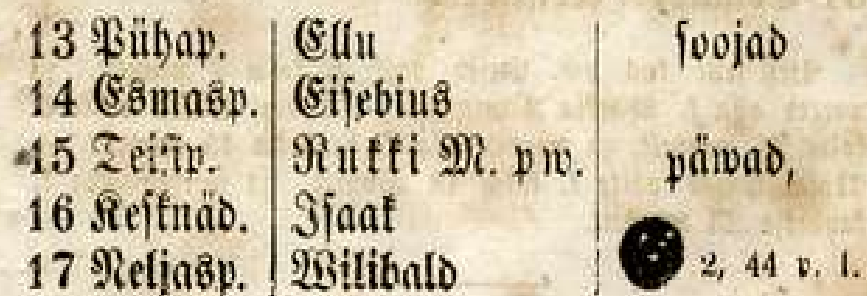 13 Pühap. Ellu soojad
14 Esmasp. Eisebius
15 Teisip. Rukki M. pw. päwad,
16 Kesknäd. Isaak
17 Neljasp. Wilibald 2, 44 p. l.